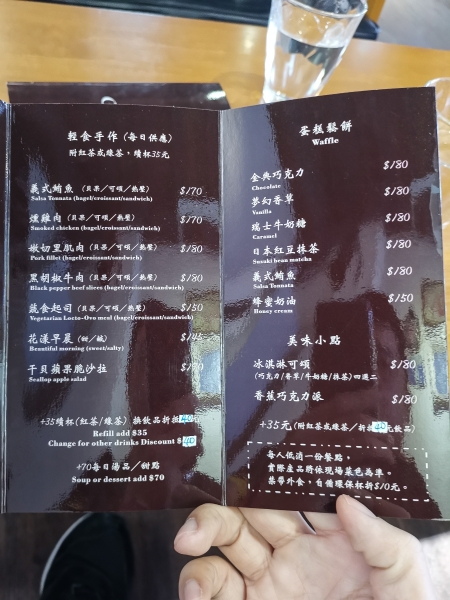 輕食手作（每日供應）
附紅茶或綠茶，續杯35元
義式鮪魚（貝果／可頌／熱壓） $170
Salsa Tonnata (bagel/croissant/sandwich)
燻雞肉（貝果／可頌／熱壓） $170
Smoked chicken (bagel/croissant/sandwich)
嫩切里肌肉（貝果／可頌／熱壓） $180
Pork fillet (bagel/croissant/sandwich)
黑胡椒牛肉（貝果／可頌／熱壓） $180
Black pepper beef slices (bagel/croissant/sandwich)
蔬食起司（貝果／可頌／熱壓） $150
Vegetarian Lacto-Ovo meal (bagel/croissant/sandwich)
花漾早晨（甜／鹹）
Beautiful morning (sweet/salty)
干貝蘋果脆沙拉
Scallop apple salad
+35續杯(紅茶/綠茶) 換飲品折抵40元
Refill add $35
Change for other drinks Discount $40
+70每日湯品／甜點
Soup or dessert add $70
蛋糕鬆餅
Waffle
金典巧克力 $180
Chocolate
夢幻香草 $180
Vanilla
瑞士牛奶糖 $180
Caramel
日本紅豆抹茶 $180
Suzuki bean matcha
義式鮪魚 $150
Salsa Tonnata
蜂蜜奶油 $150
Honey cream
美味小點
冰淇淋可頌 $180
（巧克力／香草／牛奶糖／抹茶）四選二
香蕉巧克力派 $180
+35元（附紅茶或綠茶／折抵40元飲品）
每人低消一份餐點。
實際產品將依現場菜色為準。
禁帶外食，自備環保杯折$10元。